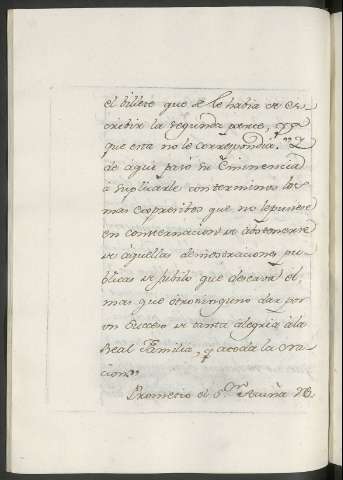 el biliete que se le habia de es
cribir la segunda parte, 
que esta no le correspondia.
de aqui pasó su Eminencia
a suplicarle con terminos los
mas expresivos que no le pusiese
en consternacion de abstenerse
de aquellas demostraciones pu
blicas de jubilo que deseava el,
mas que otro ninguno dar por
un suceso de tanta alegria à la
Real Familia, y a toda la Na
cion.
Prometio el S.or Acuña